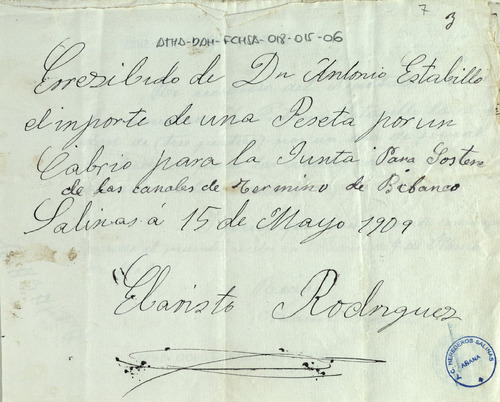 7 3
ATHA-DAH-FCHSA-018-015-06
Errezibido de Dn Antonio Estabillo
el inporte de una Peseta por un
Cabrio para la Junta Para Sostener
de las canales de Termino de Bibanco
Salinas á 15 de Mayo 1909
Ebaristo Rodriguez
A.C. HEREDEROS SALINAS
AÑANA